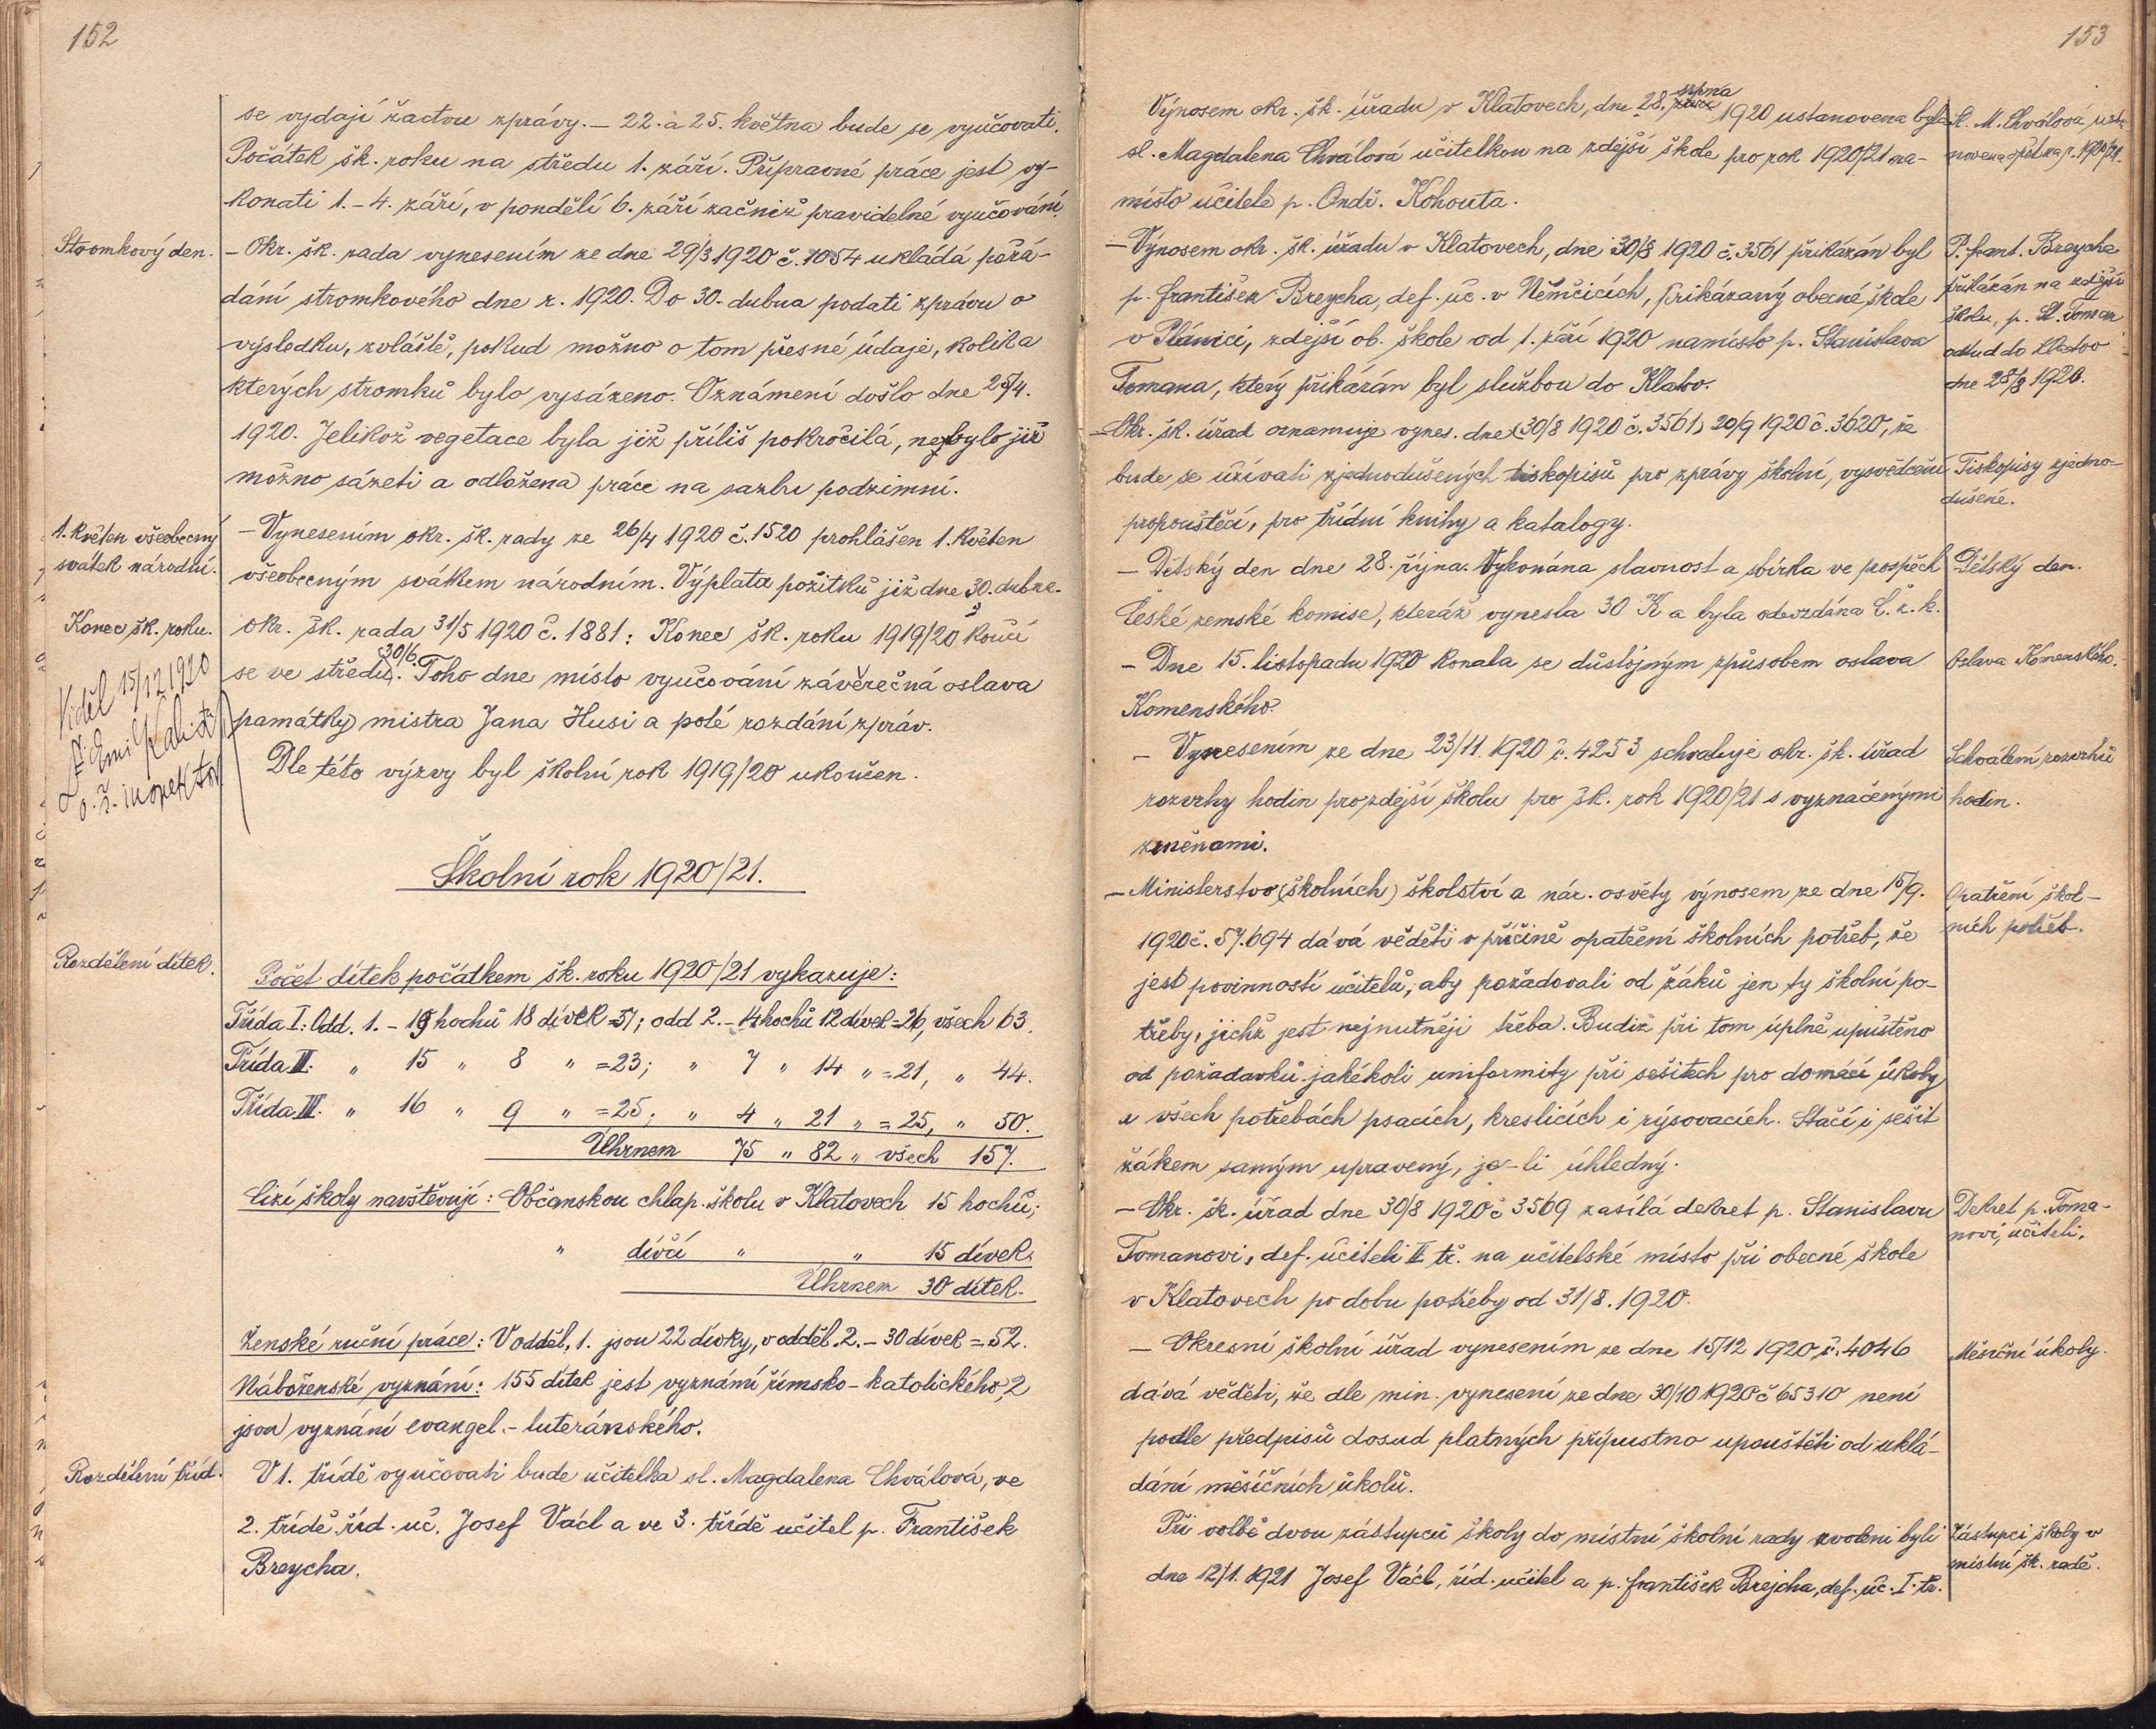 152
se vydají žactvu zprávy. — 22. a 25. května bude se vyučovati.
Počátek šk. roku na středu 1. září. Přípravné práce jest vy-
konati 1. – 4. září, v pondělí 6. září začniž pravidelné vyučování.
Stromkový den.
– Okr. šk. rada vynesením ze dne 29/3 1920 č. 1054 ukládá pořá-
dání stromkového dne r. 1920. Do 30. dubna podati zprávu o
výsledku, zvláště, pokud možno o tom přesné údaje, kolik a
kterých stromků bylo vysázeno. Oznámení došlo dne 25/4.
1920. Jelikož vegetace byla již příliš pokročilá, nebylo již
možno sázeti a odložena práce na sazbu podzimní.
1. květen všeobecný
svátek národní.
– Vynesením okr. šk. rady ze 26/4 1920 č. 1520 prohlášen 1. květen
všeobecným svátkem národním. Výplata požitků již dne 30. dubna.
Konec šk. roku.
Okr. šk. rada 31/5 1920 č. 1881: Konec šk. roku 1919/20 končí
se ve středu 30/6. Toho dne místo vyučování závěrečná oslava
památky mistra Jana Husi a poté rozdání zpráv.
Dle této výzvy byl školní rok 1919/20 ukončen.
Viděl 15/12 1920
o. š. inspektor
Školní rok 1920/21.
Rozdělení dítek.
Počet dítek počátkem šk. roku 1920/21 vykazuje:
Třída I: Odd. 1. – 19 hochů 18 dívek = 37; odd 2. – 14 hochů 12 dívek = 26, všech 63.
Třída II: „ 15 „ 8 „ = 23; „ 7 „ 14 „ = 21, „ 44.
Třída III. „ 16 „ 9 „ = 25; „ 4 „ 21 „ = 25, „ 50.
Úhrnem 75 „ 82 „ všech 157.
Cizí školy navštěvují: Občanskou chlap. školu v Klatovech 15 hochů;
„ dívčí „ „ 15 dívek.
Úhrnem 30 dítek.
Ženské ruční práce: V odděl. 1. jsou 22 dívky, v odděl. 2. – 30 dívek = 52.
Náboženské vyznání: 155 dítek jest vyznání římsko-katolického, 2
jsou vyznání evangel.-luteránského.
Rozdělení tříd.
V 1. třídě vyučovati bude učitelka sl. Magdalena Chválová, ve
2. třídě říd. uč. Josef Václ a ve 3. třídě učitel p. František
Breycha.
153
Výnosem okr. šk. úřadu v Klatovech, dne 28. srpna 1920 ustanovena byla
sl. Magdalena Chválová učitelkou na zdejší škole pro rok 1920/21 na-
místo učitele p. Ondř. Kohouta.
Sl. M. Chválová usta-
novena opět na r. 1920/21.
– Výnosem okr. šk. úřadu v Klatovech, dne 30/8 1920 č. 3561 přikázán byl
p. František Breycha, def. uč. v Němčicích, přikázaný obecné škole
v Plánici, zdejší ob. škole od 1. září 1920 namísto p. Stanislava
Tomana, který přikázán byl službou do Klatov.
P. Frant. Breycha
přikázán na zdejší
školu, p. St. Toman
odtud do Klatov
dne 28/8 1920.
– Okr. šk. úřad oznamuje vynes. dne (30/8 1920 č. 3561) 20/9 1920 č. 3620, že
bude se užívati zjednodušených tiskopisů pro zprávy školní, vysvědčení
propouštěcí, pro třídní knihy a katalogy.
Tiskopisy zjedno-
dušené.
– Dětský den dne 28. října. Vykonána slavnost a sbírka ve prospěch
České zemské komise, kteráž vynesla 30 K a byla odevzdána Č. z. k.
Dětský den.
– Dne 15. listopadu 1920 konala se důstojným způsobem oslava
Komenského.
Oslava Komenského.
– Vynesením ze dne 23/11. 1920 č. 4253 schvaluje okr. šk. úřad
rozvrhy hodin pro zdejší školu pro šk. rok 1920/21 s vyznačenými
změnami.
Schválení rozvrhů
hodin.
– Ministerstvo (školních) školství a nár. osvěty výnosem ze dne 15/9.
1920 č. 57.694 dává věděti v příčině opatření školních potřeb, že
jest povinností učitelů, aby požadovali od žáků jen ty školní po-
třeby, jichž jest nejnutněji třeba. Budiž při tom úplně upuštěno
od požadavků jakékoli uniformity při sešitech pro domácí úkoly
a všech potřebách psacích, kreslicích i rýsovacích. Stačí i sešit
žákem samým upravený, je-li úhledný.
Opatření škol-
ních potřeb.
– Okr. šk. úřad dne 30/8 1920 č 3569 zasílá dekret p. Stanislavu
Tomanovi, def. učiteli II tř. na učitelské místo při obecné škole
v Klatovech po dobu potřeby od 31/8. 1920.
Dekret p. Toma-
novi, učiteli.
– Okresní školní úřad vynesením ze dne 15/12 1920 č. 4046
dává věděti, že dle min. vynesení ze dne 30/10 1920 č 65310 není
podle předpisů dosud platných přípustno upouštěti od uklá-
dání měsíčních úkolů.
Měsíční úkoly.
Při volbě dvou zástupců školy do místní školní rady zvoleni byli
dne 12/1. 1921 Josef Václ, říd. učitel a p. František Brejcha, def. uč. I. tř.
Zástupci školy v
místní šk. radě.